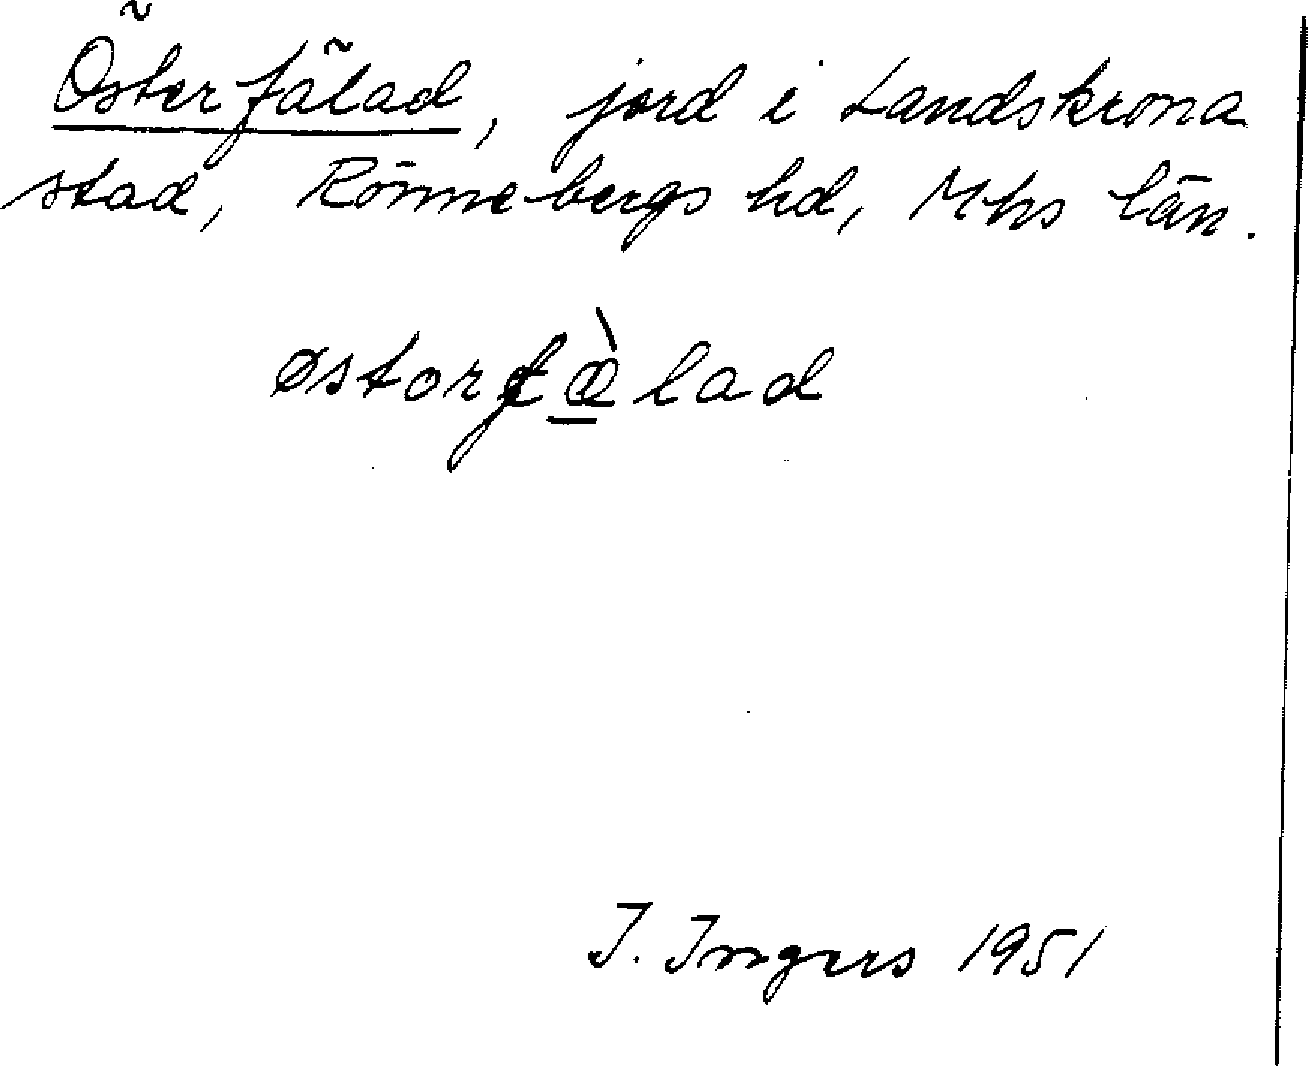 Österfälad, jord i Landskrona
stad, Rönnebergs hd, Mhs län.
østorfæ̀lad
I. Ingers 1951